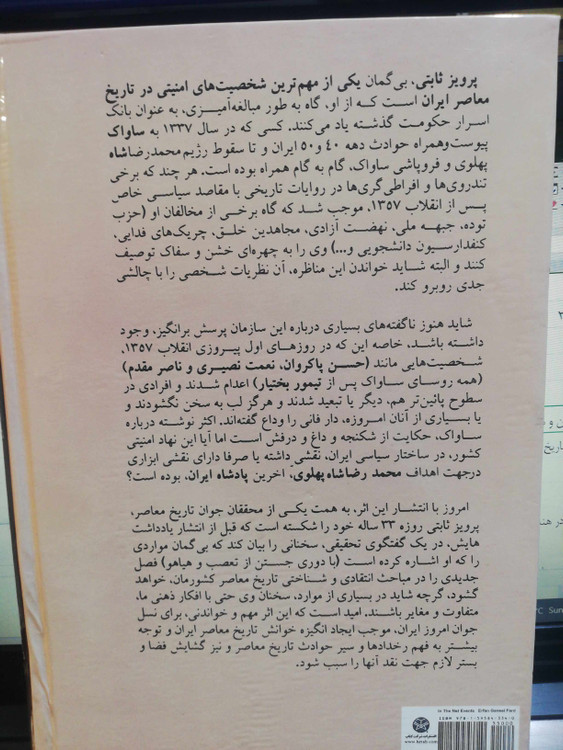 پرویز ثابتی، بی‌گمان یکی از مهم‌ترین شخصیت‌های امنیتی در تاریخ
معاصر ایران است که از او، گاه به طور مبالغه‌آمیزی، به عنوان بانک
اسرار حکومت گذشته یاد می‌کنند. کسی که در سال ۱۳۳۷ به ساواک
پیوست‌وهمراه حوادث دهه ۴۰ و۵۰ ایران و تا سقوط رژیم محمدرضاشاه
پهلوی و فروپاشی ساواک، گام به گام همراه بوده است. هر چند که برخی
تندروی‌ها و افراطی‌گری‌ها در روایات تاریخی با مقاصد سیاسی خاص
پس از انقلاب ۱۳۵۷، موجب شد که گاه برخی از مخالفان او (حزب
توده، جبهه ملی، نهضت آزادی، مجاهدین خلق، چریک‌های فدایی،
کنفدارسیون دانشجویی و...) وی را به چهره‌ای خشن و سفاک توصیف
کنند و البته شاید خواندن این مناظره، آن نظریات شخصی را با چالشی
جدی روبرو کند.
شاید هنوز ناگفته‌های بسیاری درباره این سازمان پرسش برانگیز، وجود
داشته باشد، خاصه این که در روزهای اول پیروزی انقلاب ۱۳۵۷،
شخصیت‌هایی مانند (حسن پاکروان، نعمت نصیری و ناصر مقدم)
(همه روسای ساواک پس از تیمور بختیار) اعدام شدند و افرادی در
سطوح پائین‌تر هم، دیگر یا تبعید شدند و هرگز لب به سخن نگشودند و
یا بسیاری از آنان امروزه، دار فانی را وداع گفته‌اند. اکثر نوشته درباره
ساواک، حکایت از شکنجه و داغ و درفش است اما آیا این نهاد امنیتی
کشور، در ساختار سیاسی ایران، نقشی داشته یا صرفا دارای نقشی ابزاری
درجهت اهداف محمد رضاشاه پهلوی، آخرین پادشاه ایران، بوده است؟
امروز با انتشار این اثر، به همت یکی از محققان جوان تاریخ معاصر،
پرویز ثابتی روزه ۳۳ ساله خود را شکسته است که قبل از انتشار یادداشت
هایش، در یک گفتگوی تحقیقی، سخنانی را بیان کند که بی‌گمان مواردی
را که او اشاره کرده است (با دوری جستن از تعصب و هیاهو) فصل
جدیدی را در مباحث انتقادی و شناختی تاریخ معاصر کشورمان، خواهد
گشود، گرچه شاید در بسیاری از موارد، سخنان وی حتی با افکار ذهنی ما،
متفاوت و مغایر باشند. امید است که این اثر مهم و خواندنی، برای نسل
جوان امروز ایران، موجب ایجاد انگیزه خوانش تاریخ معاصر ایران و توجه
بیشتر به فهم رخدادها و سیر حوادث تاریخ معاصر و نیز گشایش فضا و
بستر لازم جهت نقد آنها را سبب شود.